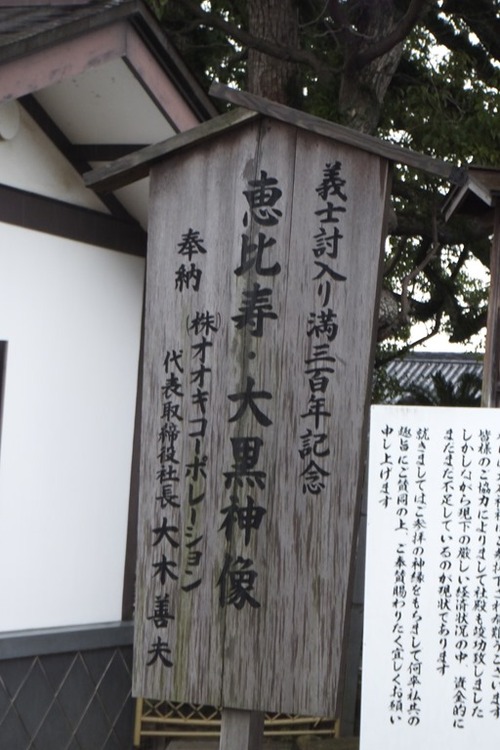 義士討入り満三百年記念
恵比寿・大黒神像
奉納
(株)オオキコーポレーション
代表取締役社長 大木善夫
皆様のご協力によりまして社殿も竣功致しました
しかしながら現下の厳しい経済状況の中、資金的に
まだまだ不足しているのが現状であります
就きましてはご参拝の神縁をもちまして何卒私共の
趣旨にご賛同の上、ご奉賛賜わりたく宜しくお願い
申し上げます